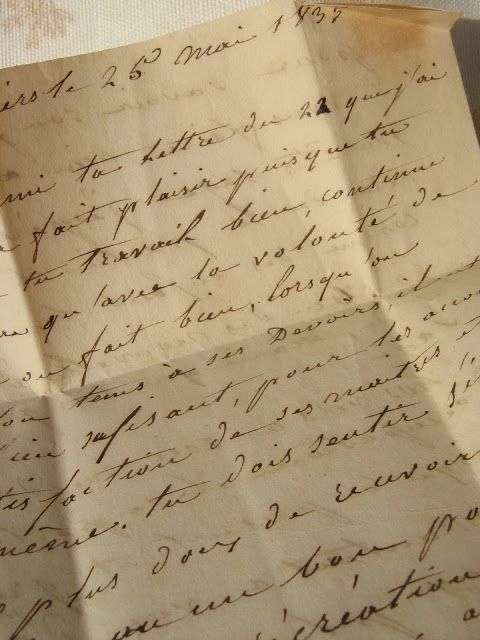 le 25 mai 1837
ta lettre du 22 que j'ai
fait plaisir puisque tu
tu travail bien, continue
qu'avec la volonté de
on fait bien, lorsqu'on
tems à ses Devoirs, il
sufisant, pour les
tisfaction de ses maitres
même. tu dois sentir
plus doux de recevoir
ou un bon
écréation